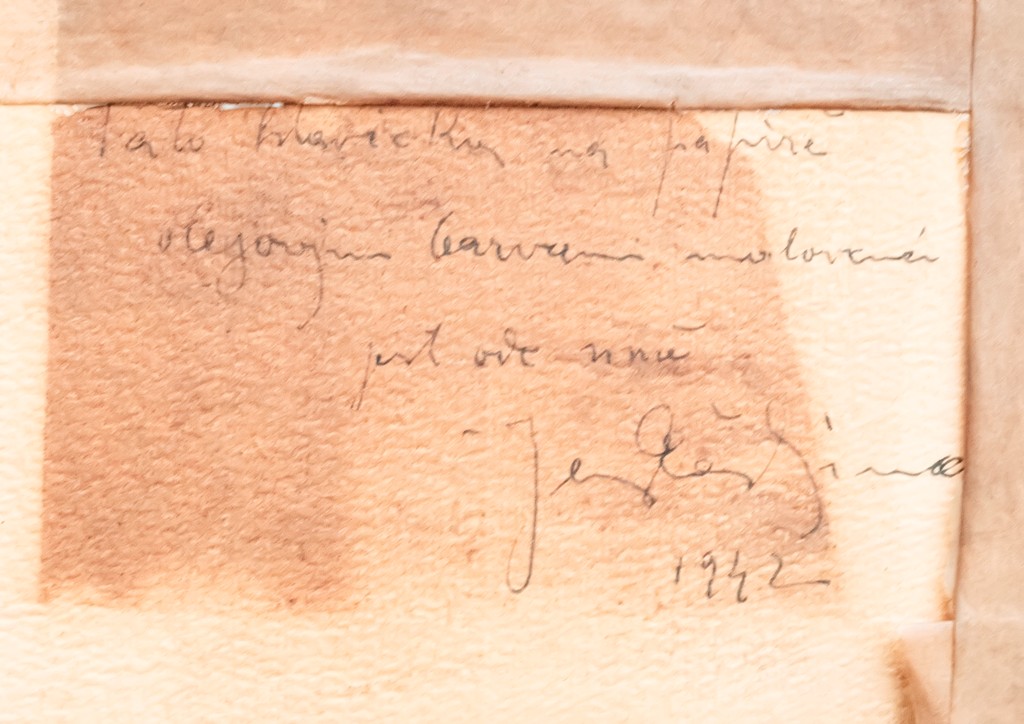 Tato hlavička na papíře
olejovými barvami malovaná
jest ode mne
Jan
1942